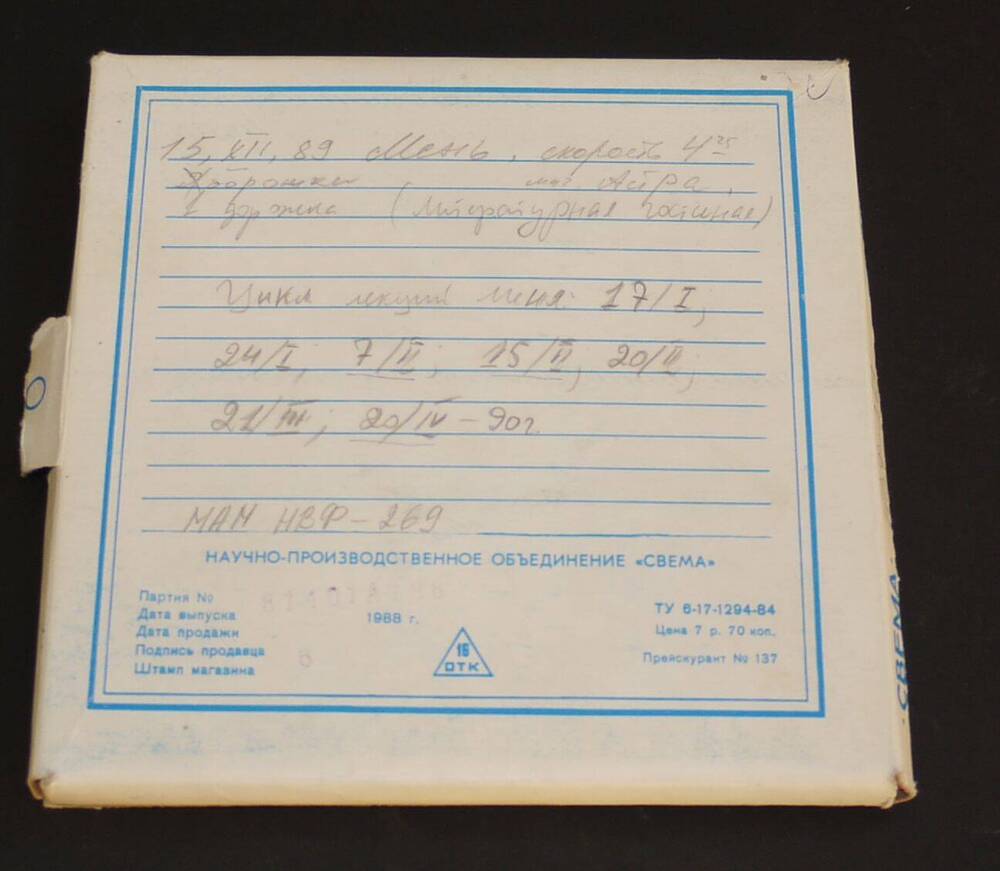 15, XII, 89 Мень, скорость 4 25
дорожка маг. Астра,
1 дорожка (Литературная гостиная)
Цикл лекций Меня: 17/I;
24/I; 7/II; 15/II; 20/II;
21/III; 20/IV – 90г.
МАМ НВФ – 269
НАУЧНО-ПРОИЗВОДСТВЕННОЕ ОБЪЕДИНЕНИЕ «СВЕМА»
Партия №
Дата выпуска 1988 г.
Дата продажи
Подпись продавца
Штамп магазина
15
ОТК
ТУ 6-17-1294-84
Цена 7 р. 70 коп.
Прейскурант № 137
СВЕМА